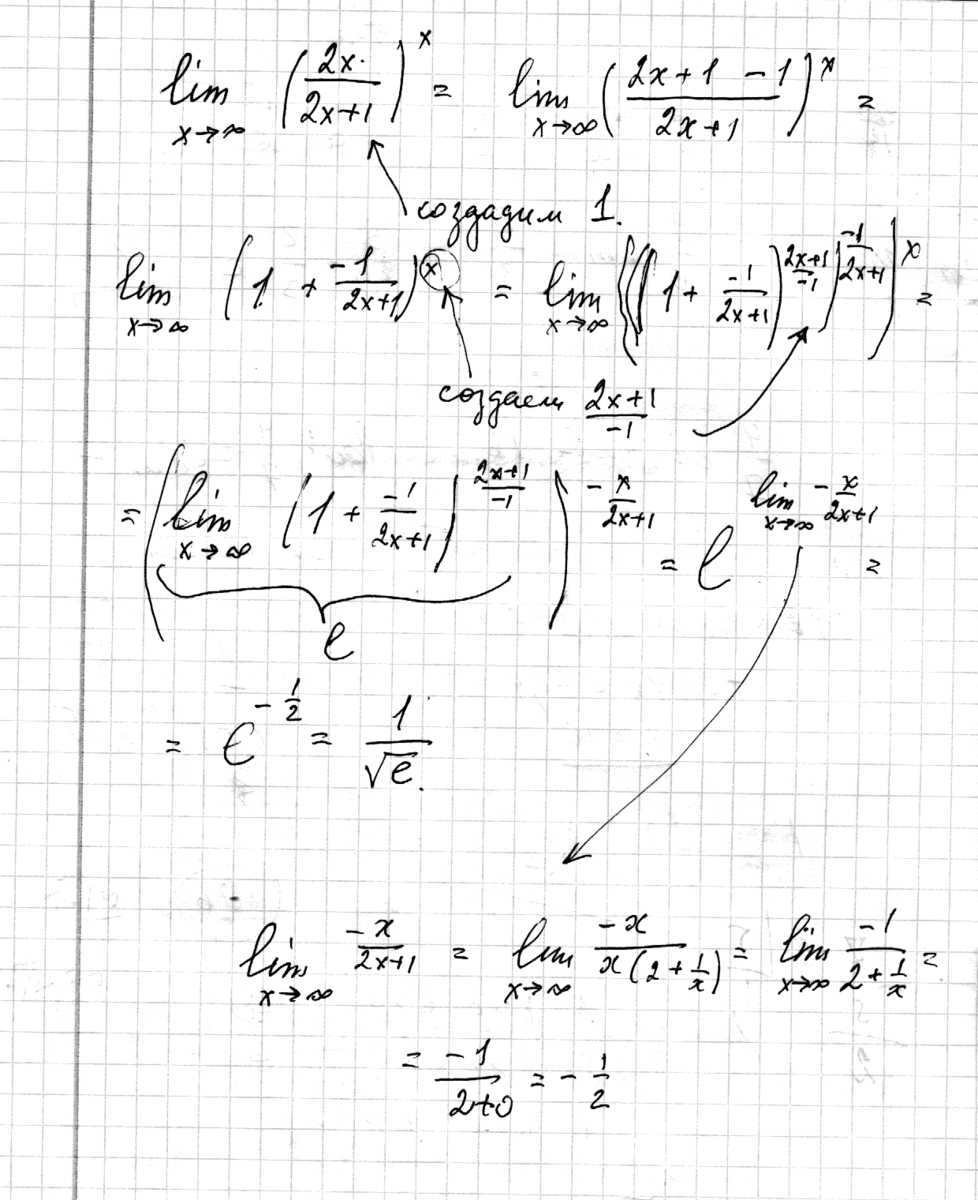 lim x→∞ (2x / 2x+1)^x = lim x→∞ (2x+1 -1 / 2x+1)^x =
создадим 1.
lim x→∞ (1 + -1 / 2x+1)^x = lim x→∞ (((1 + -1 / 2x+1)^(2x+1 / -1))^(-1 / 2x+1))^x =
создаем 2x+1 / -1
= (lim x→∞ (1 + -1 / 2x+1)^(2x+1 / -1))^(-x / 2x+1) = e^(lim x→∞ -x / 2x+1) =
e
= e^(-1/2) = 1 / √e.
lim x→∞ -x / 2x+1 = lim x→∞ -x / x(2 + 1/x) = lim x→∞ -1 / 2 + 1/x =
= -1 / 2+0 = - 1/2